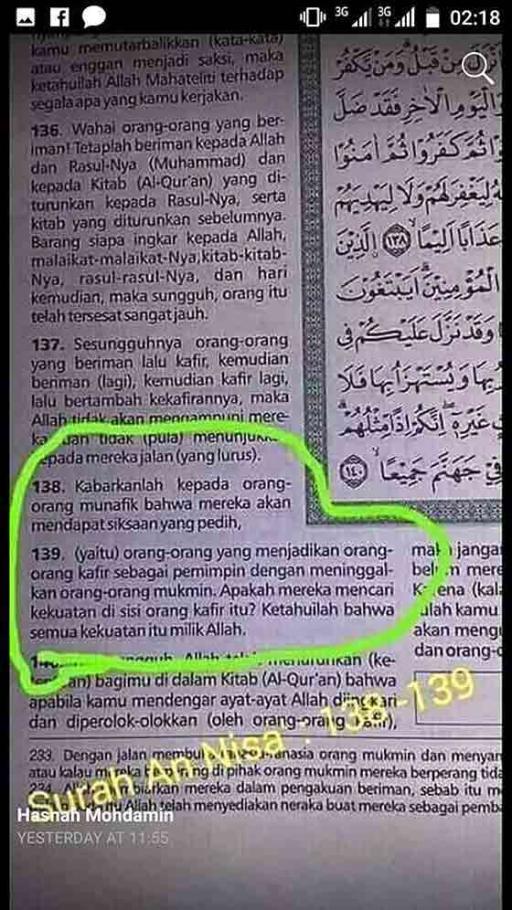 3G 3G 02:18
kamu memutarbalikkan (kata-kata)
atau enggan menjadi saksi, maka
ketahuilah Allah Mahateliti terhadap
segala apa yang kamu kerjakan.
136. Wahai orang-orang yang ber-
iman! Tetaplah beriman kepada Allah
dan Rasul-Nya (Muhammad) dan
kepada Kitab (Al-Qur'an) yang di-
turunkan kepada Rasul-Nya, serta
kitab yang diturunkan sebelumnya.
Barang siapa ingkar kepada Allah,
malaikat-malaikat-Nya, kitab-kitab-
Nya, rasul-rasul-Nya, dan hari
kemudian, maka sungguh, orang itu
telah tersesat sangat jauh.
137. Sesungguhnya orang-orang
yang beriman lalu kafir, kemudian
beriman (lagi), kemudian kafir lagi,
lalu bertambah kekafirannya, maka
Allah tidak akan mengampuni mere-
ka dan tidak (pula) menunjukkan
kepada mereka jalan (yang lurus).
138. Kabarkanlah kepada orang-
orang munafik bahwa mereka akan
mendapat siksaan yang pedih,
139. (yaitu) orang-orang yang menjadikan orang-
orang kafir sebagai pemimpin dengan meninggal-
kan orang-orang mukmin. Apakah mereka mencari
kekuatan di sisi orang kafir itu? Ketahuilah bahwa
semua kekuatan itu milik Allah.
menurunkan (ke-
bagimu di dalam Kitab (Al-Qur'an) bahwa
apabila kamu mendengar ayat-ayat Allah diingkari
dan diperolok-olokkan (oleh orang-orang kafir),
نَزَلَ مِنْ قَبْلُ وَمَنْ يَكْفُرْ
وَالْيَوْمِ الْاٰخِرِ فَقَدْ ضَلَّ
ثُمَّ كَفَرُوْا ثُمَّ اٰمَنُوْا
لِيَغْفِرَ لَهُمْ وَلَا لِيَهْدِيَهُمْ
عَذَابًا اَلِيْمًا ١٣٨ الَّذِيْنَ
الْمُؤْمِنِيْنَ اَيَبْتَغُوْنَ
وَقَدْ نَزَّلَ عَلَيْكُمْ فِى
بِهَا وَيُسْتَهْزَاُ بِهَا فَلَا
غَيْرِهٖ اِنَّكُمْ اِذًا مِّثْلُهُمْ
فِيْ جَهَنَّمَ جَمِيْعًا ١٤٠
janga
mere
(kala
ulah kamu
akan mengu
dan orang-o
233. Dengan jalan
orang mukmin dan menyam
atau kalau mereka
di pihak orang mukmin mereka berperang tida
mereka dalam pengakuan beriman, sebab itu m
Allah telah menyediakan neraka buat mereka sebagai pemba
Surah An Nisa : 138-139
Hasnah Mohdamin
YESTERDAY AT 11:55